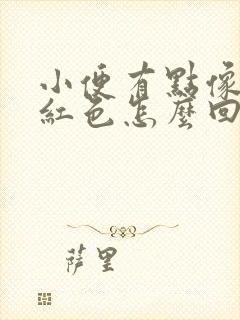 小便有點像
紅色怎麼回
萨里